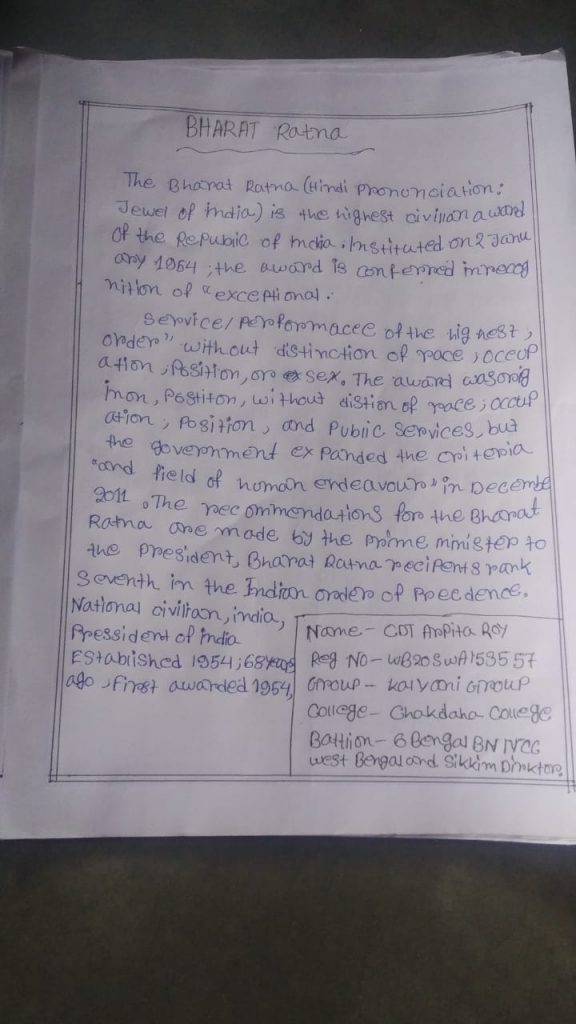 BHARAT Ratna
The Bharat Ratna (Hindi pronunciation:
Jewel of india) is the highest civilian award
of the Republic of India. Instituted on 2 Janu
ary 1954, the award is conferred in recog
nition of "exceptional.
Service/Performacee of the highest,
order" without distinction of race, occup
ation, Position, or sex. The award was orig
inon, Postiton, without distion of race, occup
ation, Position, and Public Services, but
the government expanded the criteria
"and field of human endeavour" in Decembe
2011. The recommendations for the Bharat
Ratna are made by the prime minister to
the president, Bharat Ratna recipents rank
Seventh in the Indian order of Preedence.
National civilian, india,
Pressident of india
EStablished 1954; 68 years
ago, First awarded 1954,
Name - CDT Arpita Roy
Reg No - WB20SWA153557
Group - Kalyani Group
College - Chakdaha College
Battlion - 6 Bengal BN NCC
West Bengal and Sikkim Dirktor.